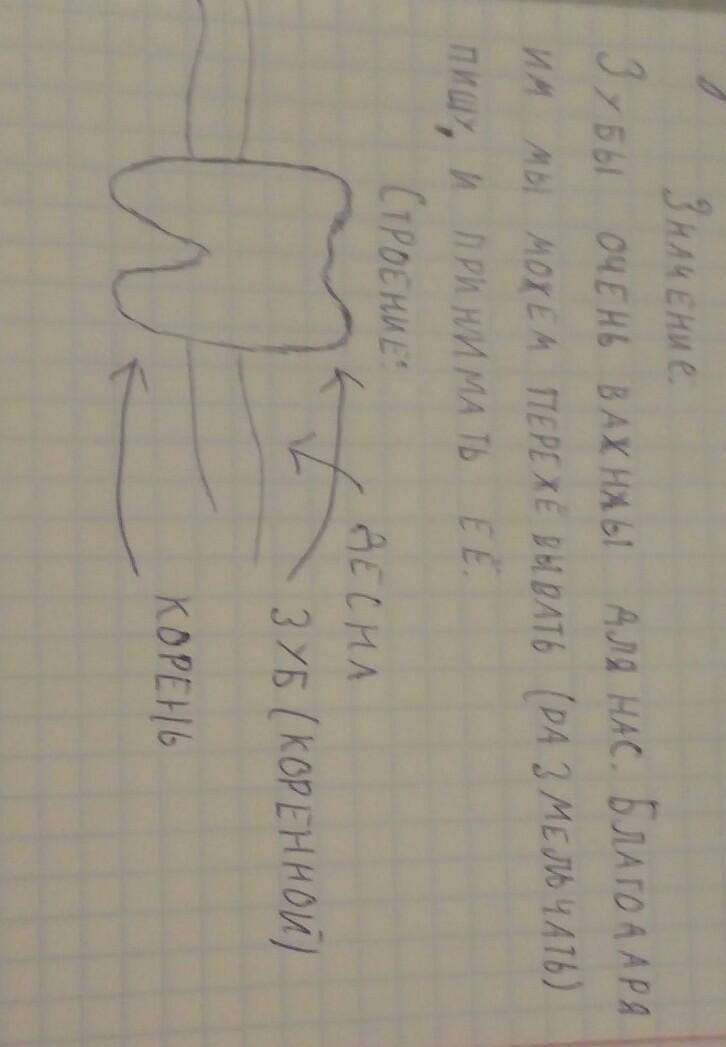 Значение.
Зубы очень важны для нас. Благодаря
им мы можем пережёвывать (размельчать)
пищу, и принимать её.
Строение:
десна
зуб (коренной)
корень